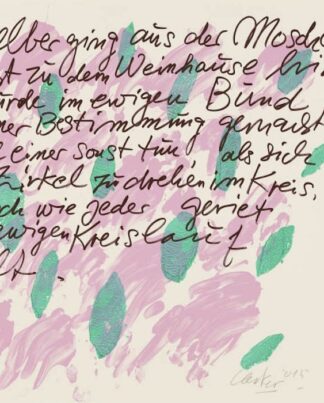 elber ging aus der Mosch
st zu dem Weinhause hi
urde im ewigen Bund
ner Bestimmung gemacht
einer sonst tun, als sich
Zirkel zu drehen im Kreis,
ch wie jeder geriet
ewigen Kreislauf
lt.
'015